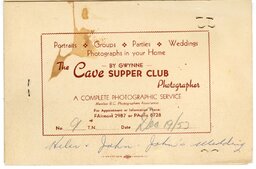 Portraits • Groups • Parties • Weddings
Photographs in your Home
— BY GWYNNE —
The Cave SUPPER CLUB
Photographer
A COMPLETE PHOTOGRAPHIC SERVICE
Member B.C. Photographers Association
For Appointment or Information Phone:
FAirmont 2987 or PAcific 8728
No. 9 T.N. Date Dec 19/53
Helen & John - John's wedding